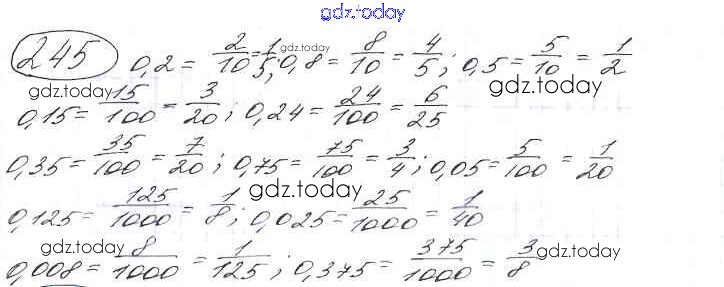 gdz.today
245 0,2 = 2/10 = 1/5; 0,8 = 8/10 = 4/5; 0,5 = 5/10 = 1/2
gdz.today
gdz.today gdz.today
0,15 = 15/100 = 3/20; 0,24 = 24/100 = 6/25
0,35 = 35/100 = 7/20; 0,75 = 75/100 = 3/4; 0,05 = 5/100 = 1/20
gdz.today
0,125 = 125/1000 = 1/8; 0,025 = 25/1000 = 1/40
gdz.today gdz.today
0,008 = 8/1000 = 1/125; 0,375 = 375/1000 = 3/8